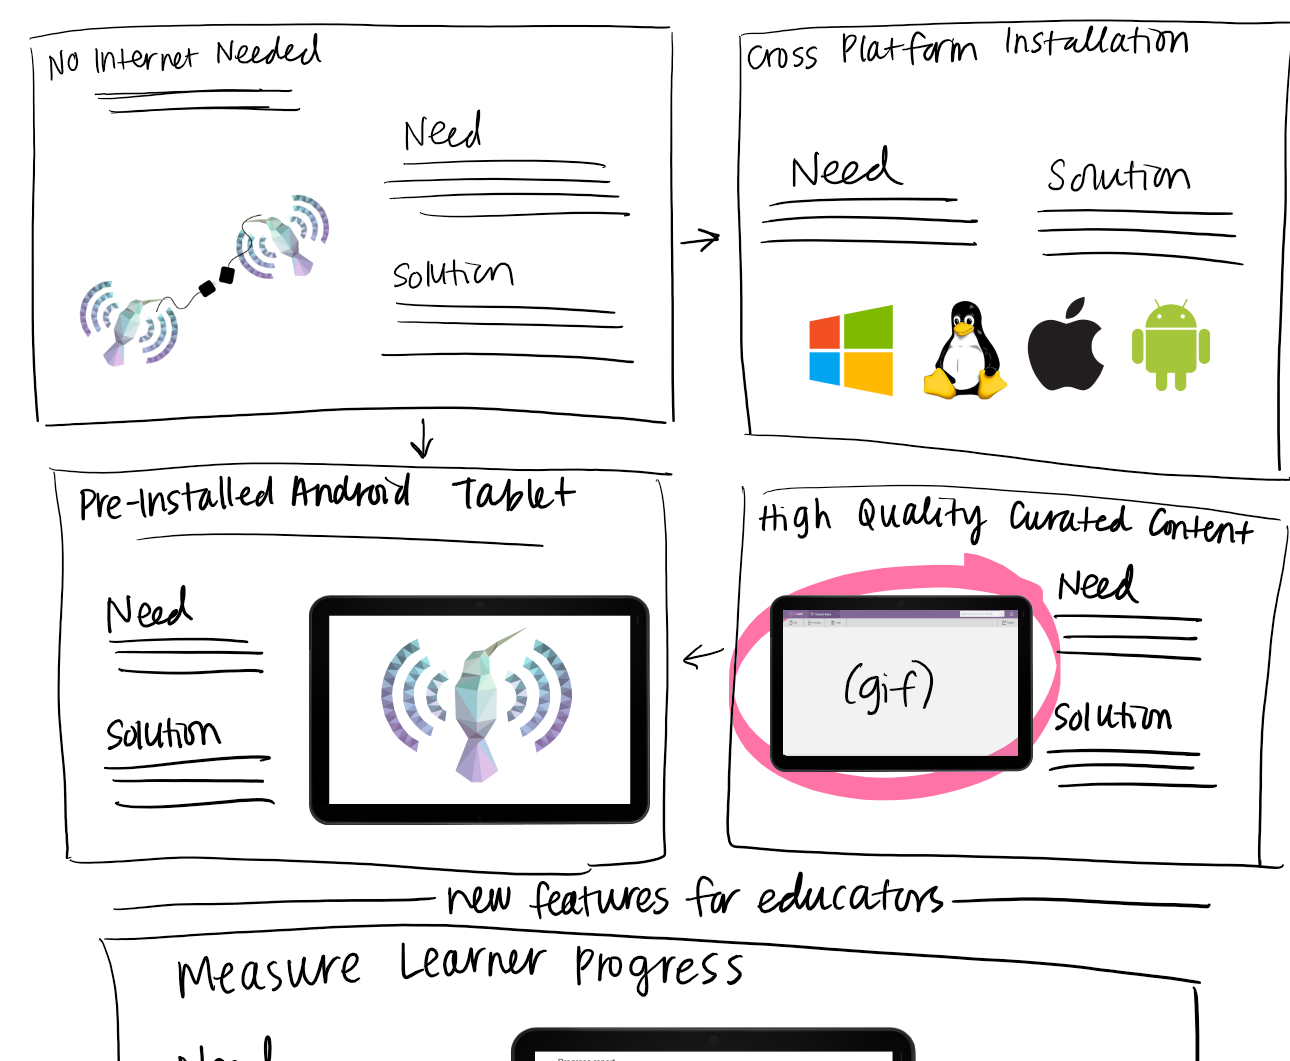 No Internet Needed
Need
Solution
Cross Platform Installation
Need
Solution
Pre-Installed Android Tablet
Need
Solution
High Quality Curated Content
(gif)
Need
Solution
new features for educators
Measure Learner Progress
Need